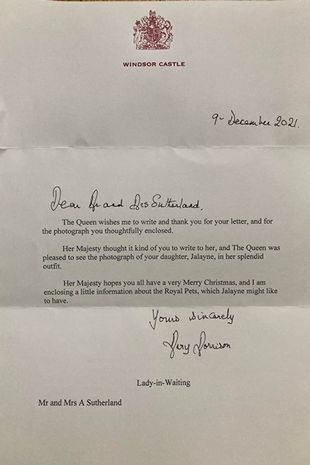 WINDSOR CASTLE
9th December 2021.
Dear Mr and Mrs Sutherland,
The Queen wishes me to write and thank you for your letter, and for
the photograph you thoughtfully enclosed.
Her Majesty thought it kind of you to write to her, and The Queen was
pleased to see the photograph of your daughter, Jalayne, in her splendid
outfit.
Her Majesty hopes you all have a very Merry Christmas, and I am
enclosing a little information about the Royal Pets, which Jalayne might like
to have.
Yours sincerely
Morrison
Lady-in-Waiting
Mr and Mrs A Sutherland